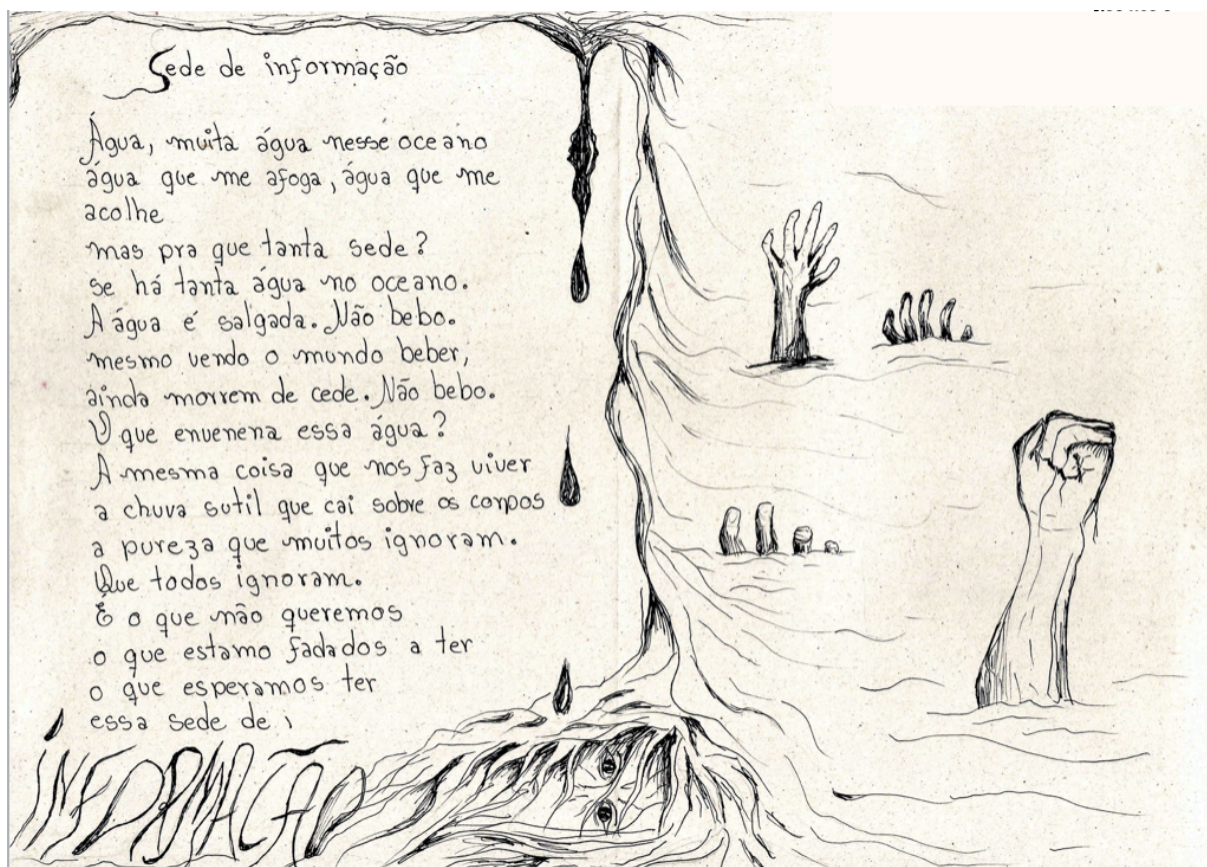 Sede de informação
Água, muita água nesse oceano
água que me afoga, água que me
acolhe
mas pra que tanta sede?
se há tanta água no oceano.
A água é salgada. Não bebo.
mesmo vendo o mundo beber,
ainda morrem de cede. Não bebo.
O que envenena essa água?
A mesma coisa que nos faz viver
a chuva sutil que cai sobre os corpos
a pureza que muitos ignoram.
Que todos ignoram.
É o que não queremos
o que estamo fadados a ter
o que esperamos ter
essa sede de
INFORMAÇÃO